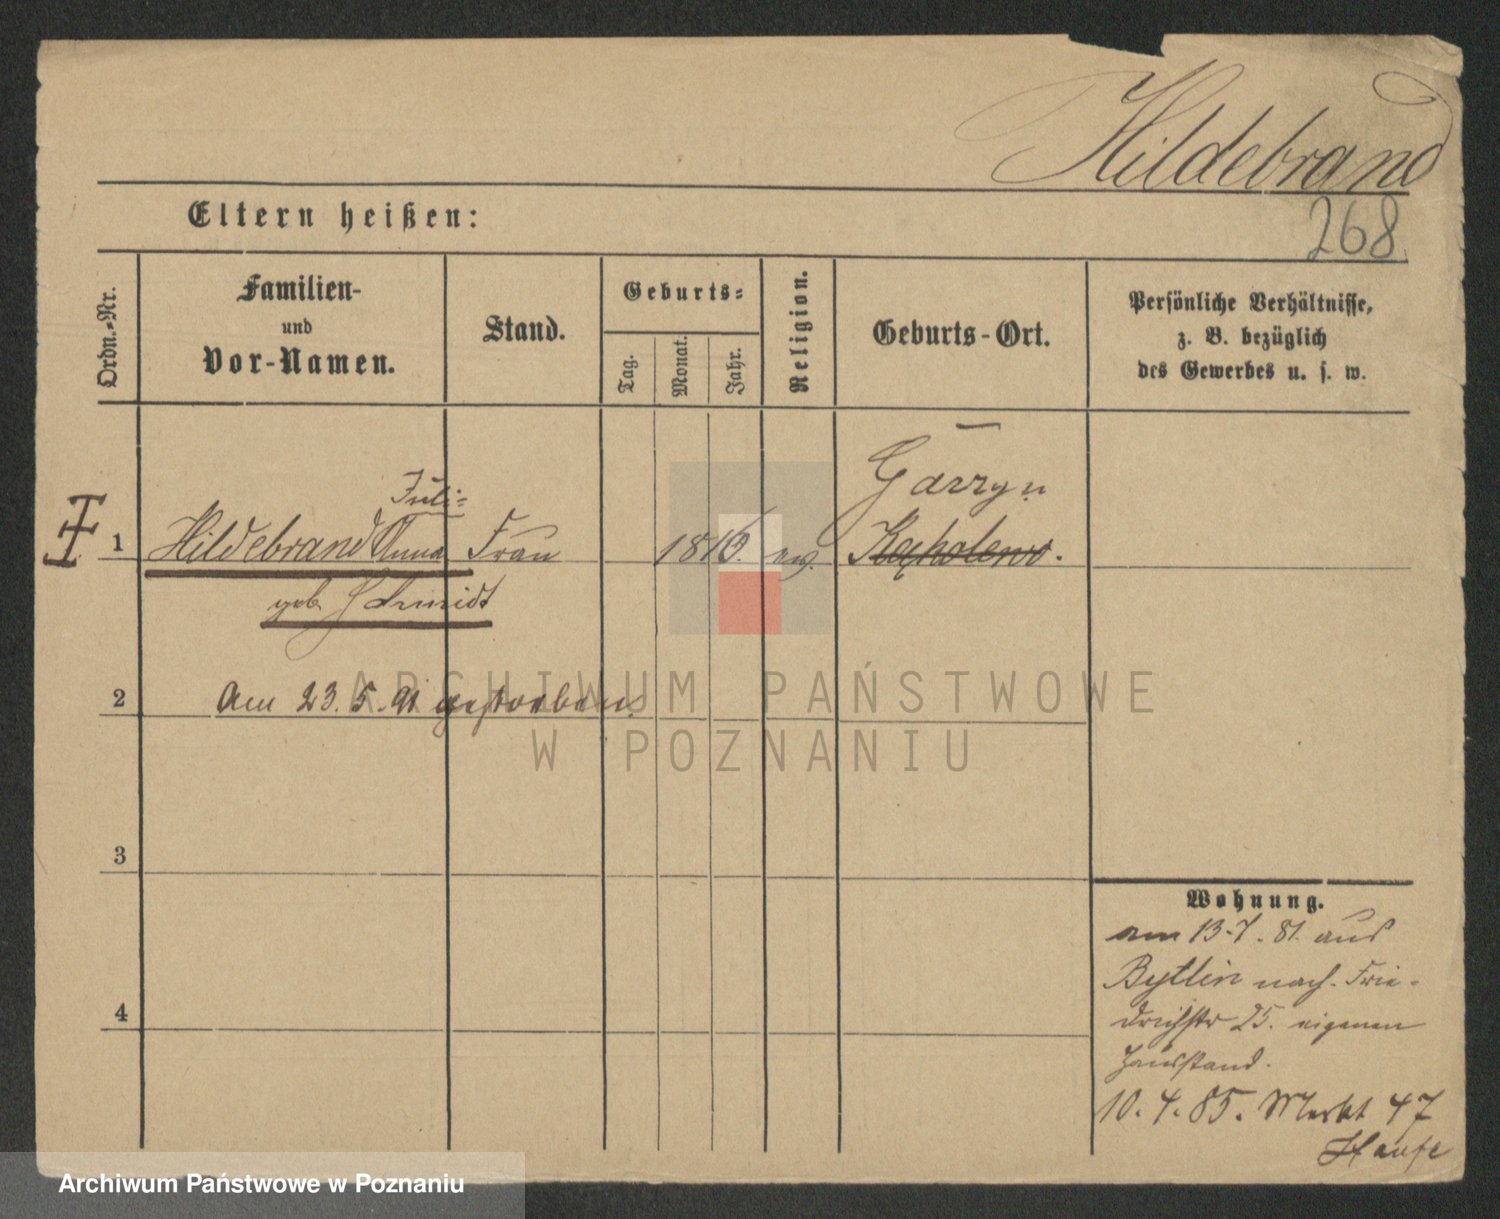 Hildebrand
268
Eltern heißen:
Ordn.-Nr.
Familien-
und
Vor-Namen.
Stand.
Geburts-
Tag.
Monat.
Jahr.
Religion.
Geburts-Ort.
Persönliche Verhältnisse,
z. B. bezüglich
des Gewerbes u. s. w.
Juli-
1 Hildebrand Anna Frau 1816. ev.
geb. Schmidt
2 Am 23. 5. 91 gestorben.
3
4
Wohnung.
am 13.7.81. aus
Bythin nach Frie-
drichstr 25. eigenen
Hausstand.
10.4.85. Markt 47
Haupe
ARCHIWUM PAŃSTWOWE
W POZNANIU
Archiwum Państwowe w Poznaniu